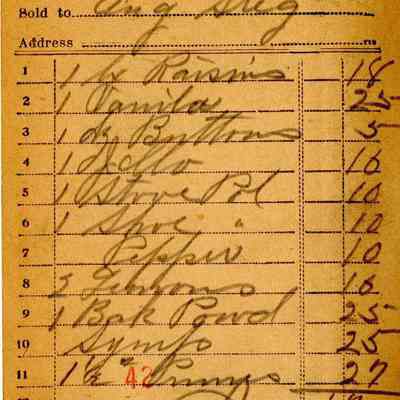 Sold to
Address
1 1 lb Raisins 18
2 1 Vanila 25
3 1 dz Buttons 5
4 1 Jello 10
5 1 Stove Pol 10
6 1 Shoe " 10
7 Pepper 10
8 3 Lemons 10
9 1 Bak Powd 25
10 Symps 25
11 1 1/2 " 42 Prunes 27